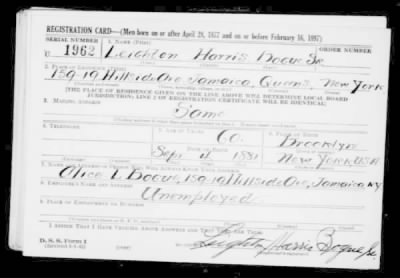 REGISTRATION CARD—(Men born on or after April 28, 1877 and on or before February 16, 1897)
SERIAL NUMBER 1. NAME (Print) ORDER NUMBER
U 1962 Leighton Harris Bogue Sr
2. PLACE OF RESIDENCE (Print)
159-19 Hillside Ave Jamaica, Queens New York
[THE PLACE OF RESIDENCE GIVEN ON THE LINE ABOVE WILL DETERMINE LOCAL BOARD
JURISDICTION; LINE 2 OF REGISTRATION CERTIFICATE WILL BE IDENTICAL]
3. MAILING ADDRESS
Same
4. TELEPHONE 5. AGE IN YEARS 6. PLACE OF BIRTH
60 Brooklyn
DATE OF BIRTH
Sept 1881 New York U.S.A.
7. NAME AND ADDRESS OF PERSON WHO WILL ALWAYS KNOW YOUR ADDRESS
Alice L Bogue, 159-19 Hillside Ave, Jamaica NY
8. EMPLOYER'S NAME AND ADDRESS
Unemployed
9. PLACE OF EMPLOYMENT OR BUSINESS
I AFFIRM THAT I HAVE VERIFIED ABOVE ANSWERS AND THAT THEY ARE TRUE.
D. S. S. Form 1 Leighton Harris Bogue Sr.